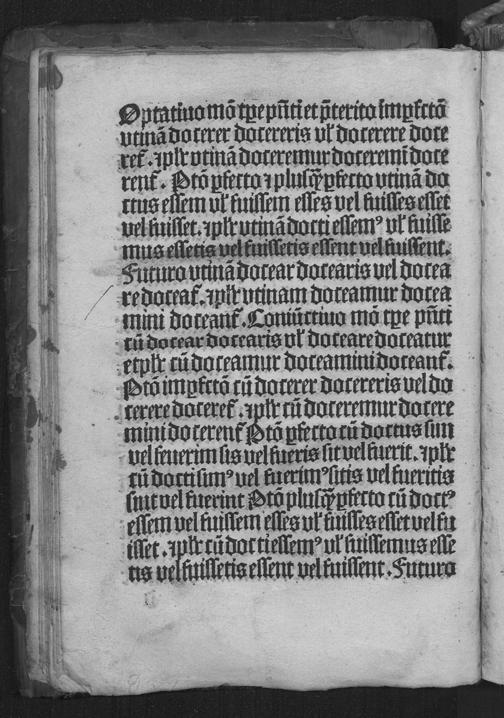 Optatiuo mō tꝑe pn̄ti et p̄terito īmꝑfctō
vtinā docerer docereris vl̕ docerere doce
ret᷑ . ⁊plr̕ vtinā doceremur doceremī doce
rent᷑ . Ptō ꝑfecto ⁊plusq̄ꝑfecto vtinā do
ctus essem vl̕ fuissem esses vel fuisses esset
vel fuisset . ⁊plr̕ vtinā docti essemꝰ vl̕ fuisse
mus essetis vel fuissetis essent vel fuissent.
Futuro vtinā docear docearis vel docea
re doceat᷑ . ⁊plr̕ vtinam doceamur docea
mini doceant᷑ . Coniūctiuo mō tꝑe pn̄ti
cū docear docearis vl̕ doceare doceatur
et plr̕ cū doceamur doceamini doceant᷑ .
Ptō imꝑfctō cū docerer docereris vel do
cerere doceret᷑ . ⁊plr̕ cū doceremur docere
mini docerent᷑ Ptō ꝑfecto cū doctus sim
vel feuerim sis vel fueris sit vel fuerit . ⁊plr̕
cū docti simꝰ vel fuerimꝰ sitis vel fueritis
sint vel fuerint Ptō plusq̄ꝑfecto cū doctꝰ
essem vel fuissem esses vl̕ fuisses esset vel fu
isset . ⁊plr̕ cū docti essemꝰ vl̕ fuissemus esse
tis vel fuissetis essent vel fuissent . Futuro